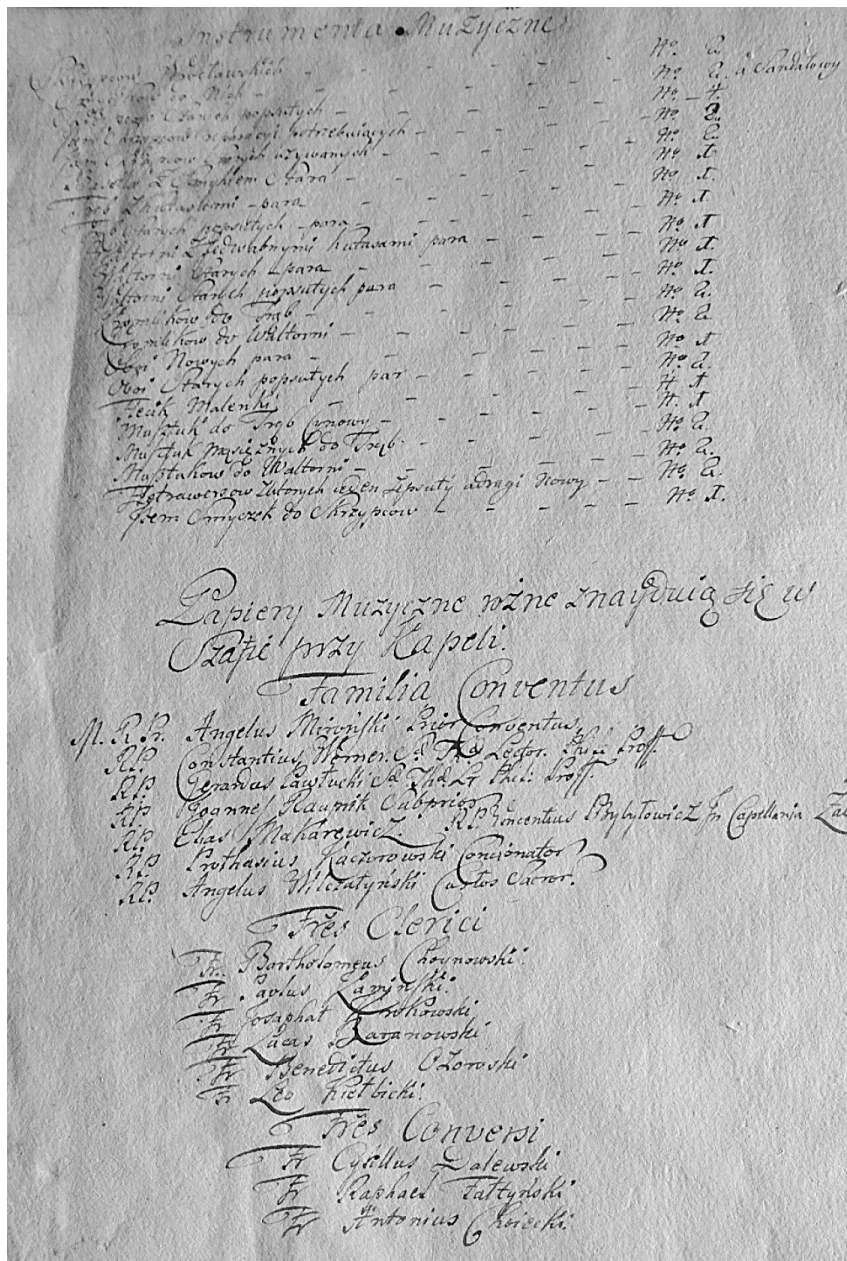 Instrumenta Muzyczne
Skrzypcow Wrocławskich - - - - - - - No. 2.
Smyczkow do Nich - - - - - - - No. 2. a Sandałowy
Starych popsutych - - - - - - No. 4.
Item Skrzypcow reparacyi potrzebuiących - - - - - No. 2.
Item Skrzypcow używanych - - - - - - No. 2.
z Smykiem Stara - - - - - - No. 1.
Trąb z kutasami - para - - - - - - No. 1.
Trąb Starych popsutych - para - - - - - - No. 1.
Waltorni z Jedwabnymi kutasami para - - - - No. 1
Waltorni Starych para - - - - - - No. 1.
Waltorni Starych popsutych para - - - - - No. 1.
Kromlikow do Trąb - - - - - - No. 2.
Kromlikow do Waltorni - - - - - - No. 2
Oboi Nowych para - - - - - - No. 1
Oboi Starych popsutych par - - - - - No. 2.
Flecik Malenki - - - - - - N. 1
Musztuk do Trąb Cynowy - - - - - - N. 1
Musztuk Mosiężnych do Trąb - - - - - No. 2.
Musztukow do Waltorni - - - - - - No. 2.
Fletrawersow Których ieden Zepsuty a drugi Nowy - - No. 2.
Item Smyczek do Skrzypcow - - - - - No. 1.
Papiery Muzyczne rożne znayduią się w
Szafie przy Kapeli.
Familia Conventus
M. R. Pr. Angelus Miroński Prior Conventus
RP. Constantius Werner. Sae Thae Lector. Phil. Proff.
RP. Gerardus Pawłucki Sae Thae Lr Phil: Proff.
RP Joannes Raupnik Subprior.
RP. Elias Makarewicz. RP. Vincentius Przybyłowicz in Capellania
RP. Prothasius Kaczorowski Concionator
RP. Angelus Wilczatyński Custos Sacror.
Frēs Clerici
Fr. Bartholomęus Choynowski.
Fr Paulus Kaminski.
Fr Josaphat Krokowski
Fr Lucas Baranowski
Fr Benedictus Ożowski
Fr Leo Kiełbicki.
Frēs Conversi
Fr Cyrillus Dalewski
Fr Raphael Fałtyński
Fr Antonius Choiecki.